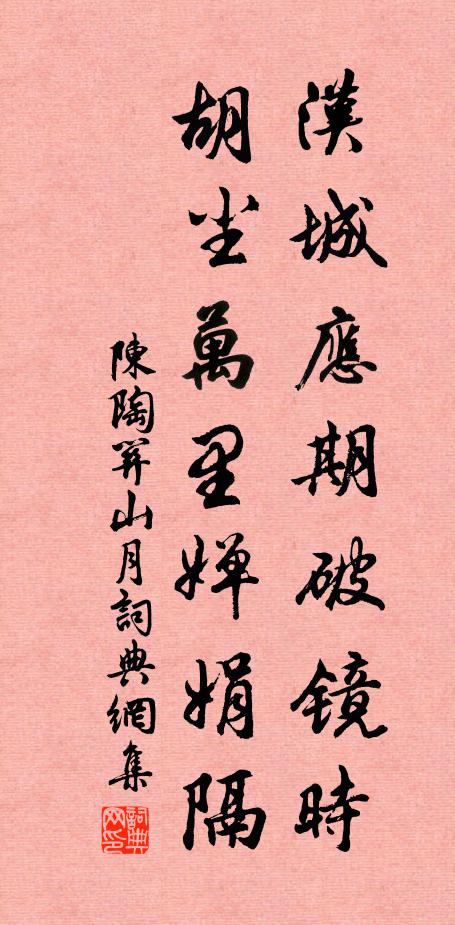 漢城應期破镜時
胡尘萬里嬋娟隔
陳陶关山月詞典網集
詞典网印